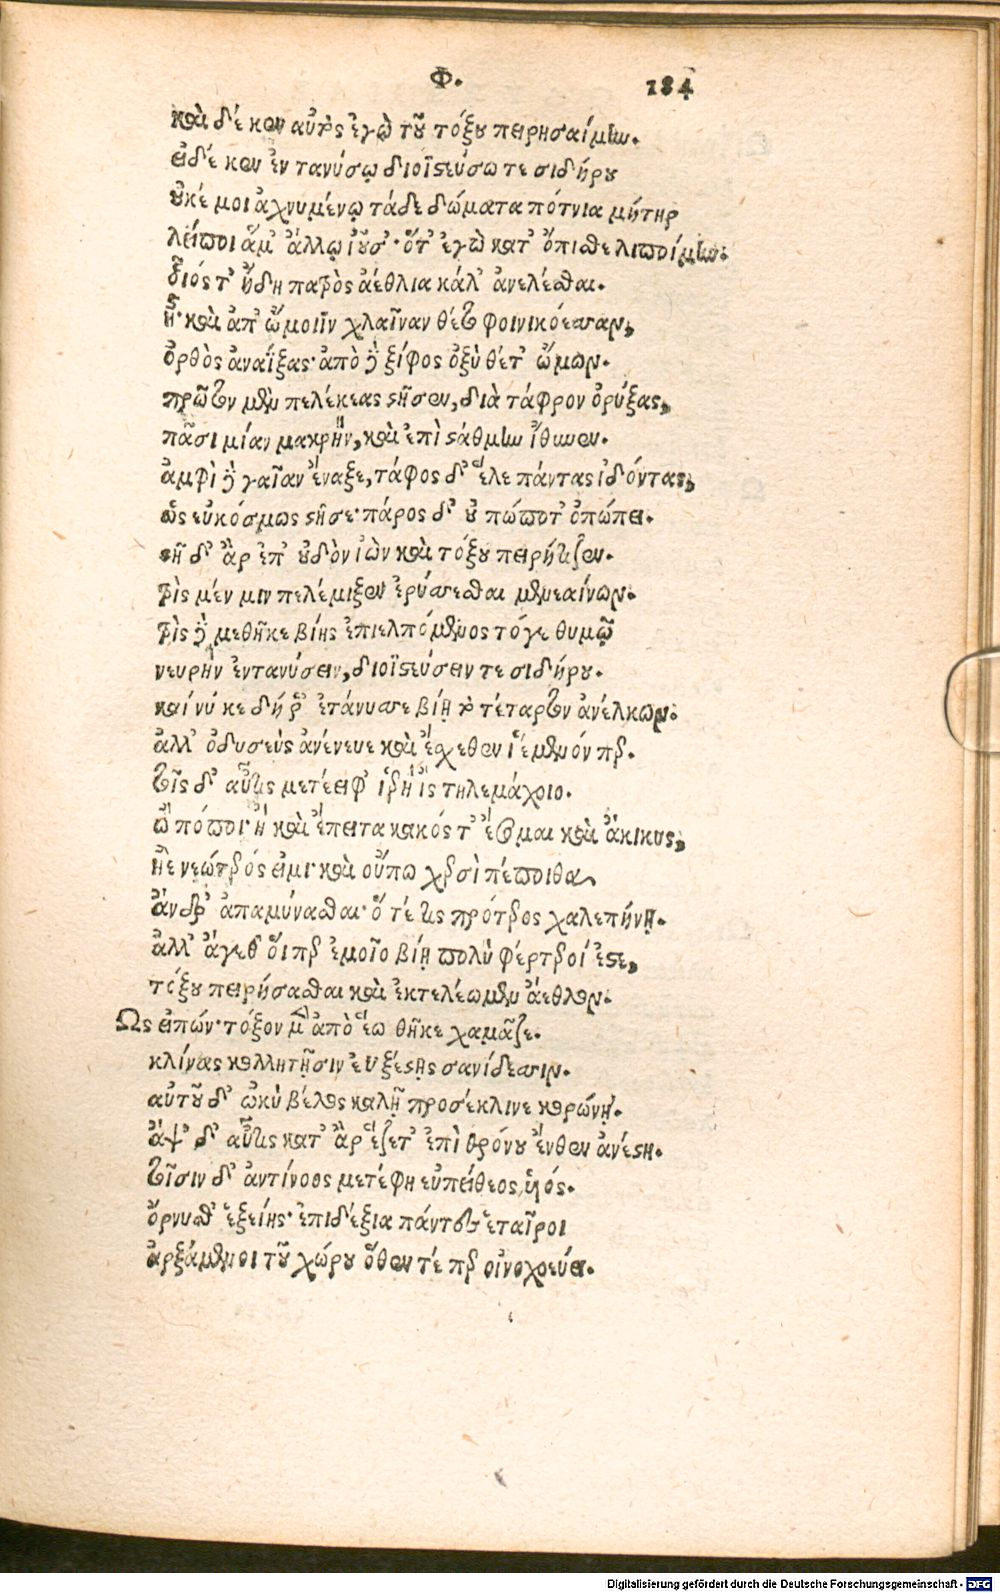 Φ. 184
καὶ δέ κεν αὐτὸς ἐγὼ τοῦ τόξου πειρησαίμην.
εἰ δέ κεν ἐντανύσω διοϊστεύσω τε σιδήρου
οὔ κέ μοι ἀχνυμένῳ τάδε δώματα πότνια μήτηρ
λείποι ἅμ' ἄλλῳ ἰοῦσ'· ὅτ' ἐγὼ κατ' ὄπισθε λιποίμην.
οἷός τ' ἤδη πατρὸς ἀέθλια κάλ' ἀνελέσθαι.
ἦ· καὶ ἀπ' ὤμοιϊν χλαῖναν θέτο φοινικόεσσαν,
ὀρθὸς ἀναΐξας· ἀπὸ δὲ ξίφος ὀξὺ θέτ' ὤμων.
πρῶτον μὲν πελέκεας στῆσεν, διὰ τάφρον ὀρύξας,
πᾶσι μίαν μακρὴν, καὶ ἐπὶ στάθμην ἴθυνεν.
ἀμφὶ δὲ γαῖαν ἔναξε, τάφος δ' ἕλε πάντας ἰδόντας,
ὡς εὐκόσμως στῆσε· πάρος δ' οὐ πώποτ' ὀπώπει.
στῆ δ' ἂρ ἐπ' οὐδὸν ἰὼν καὶ τόξου πειρήτιζεν.
τρὶς μέν μιν πελέμιξεν ἐρύσσεσθαι μενεαίνων.
τρὶς δὲ μεθῆκε βίης ἐπιελπόμενος τόγε θυμῷ
νευρὴν ἐντανύσειν, διοϊστεύσειν τε σιδήρου.
καί νύ κε δή ῥ' ἐτάνυσσε βίῃ τὸ τέταρτον ἀνέλκων.
ἀλλ' ὀδυσεὺς ἀνένευε καὶ ἔσχεθεν ἱέμενόν περ.
τοῖς δ' αὖτις μετέειφ' ἱερὴ ἲς τηλεμάχοιο.
ὢ πόποι· ἦ καὶ ἔπειτα κακός τ' ἔσομαι καὶ ἄκικυς,
ἠὲ νεώτερός εἰμι· καὶ οὔπω χερσὶ πέποιθα
ἄνδρ' ἀπαμύνασθαι· ὅτέ τις πρότερος χαλεπήνῃ.
ἀλλ' ἄγεθ' οἵ περ ἐμοῖο βίῃ πολὺ φέρτεροί ἐστε,
τόξου πειρήσασθαι καὶ ἐκτελέωμεν ἄεθλον.
Ως εἰπών· τόξον μὲν ἀπὸ ἕω θῆκε χαμᾶζε.
κλίνας κολλητῇσιν ἐϋξέστῃς σανίδεσσιν.
αὐτοῦ δ' ὠκὺ βέλος καλῇ προσέκλινε κορώνῃ.
ἂψ δ' αὖτις κατ' ἂρ ἕζετ' ἐπὶ θρόνου ἔνθεν ἀνέστη.
τοῖσιν δ' ἀντίνοος μετέφη εὐπείθεος υἱός.
ὄρνυσθ' ἑξείης· ἐπιδέξια πάντες ἑταῖροι
ἀρξάμενοι τοῦ χώρου ὅθεν τέ περ οἰνοχοεύει.
Digitalisierung gefördert durch die Deutsche Forschungsgemeinschaft - DFG